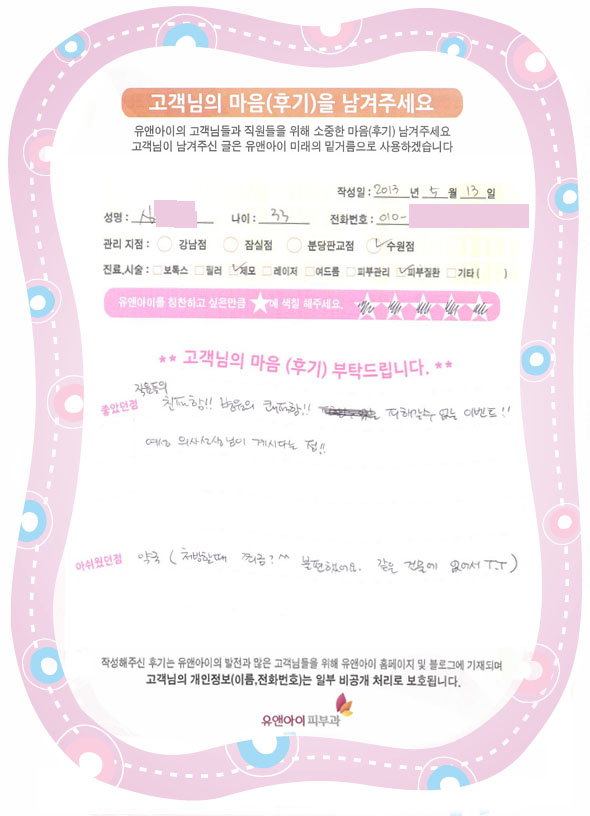 고객님의 마음(후기)을 남겨주세요
유앤아이의 고객님들과 직원들을 위해 소중한 마음(후기) 남겨주세요
고객님이 남겨주신 글은 유앤아이 미래의 밑거름으로 사용하겠습니다
작성일 : 2013 년 5 월 13 일
성명 : 나이 : 33 전화번호 : 010-
관리 지점 : 강남점 잠실점 분당판교점 수원점
진료,시술 : 보톡스 필러 제모 레이저 여드름 피부관리 피부질환 기타 ( )
유앤아이를 칭찬하고 싶은만큼 ★에 색칠 해주세요.
** 고객님의 마음 (후기) 부탁드립니다. **
직원들의
좋았던점 친절함!! 병원의 쾌적함!! 피해갈수 없는 이벤트!!
예쁜 의사선생님이 계시다는 점!!
아쉬웠던점 약국 (처방할때 쪼금?^^ 불편했어요. 같은 건물에 없어서 T.T)
작성해주신 후기는 유앤아이의 발전과 많은 고객님들을 위해 유앤아이 홈페이지 및 블로그에 기재되며
고객님의 개인정보(이름,전화번호)는 일부 비공개 처리로 보호됩니다.
유앤아이피부과